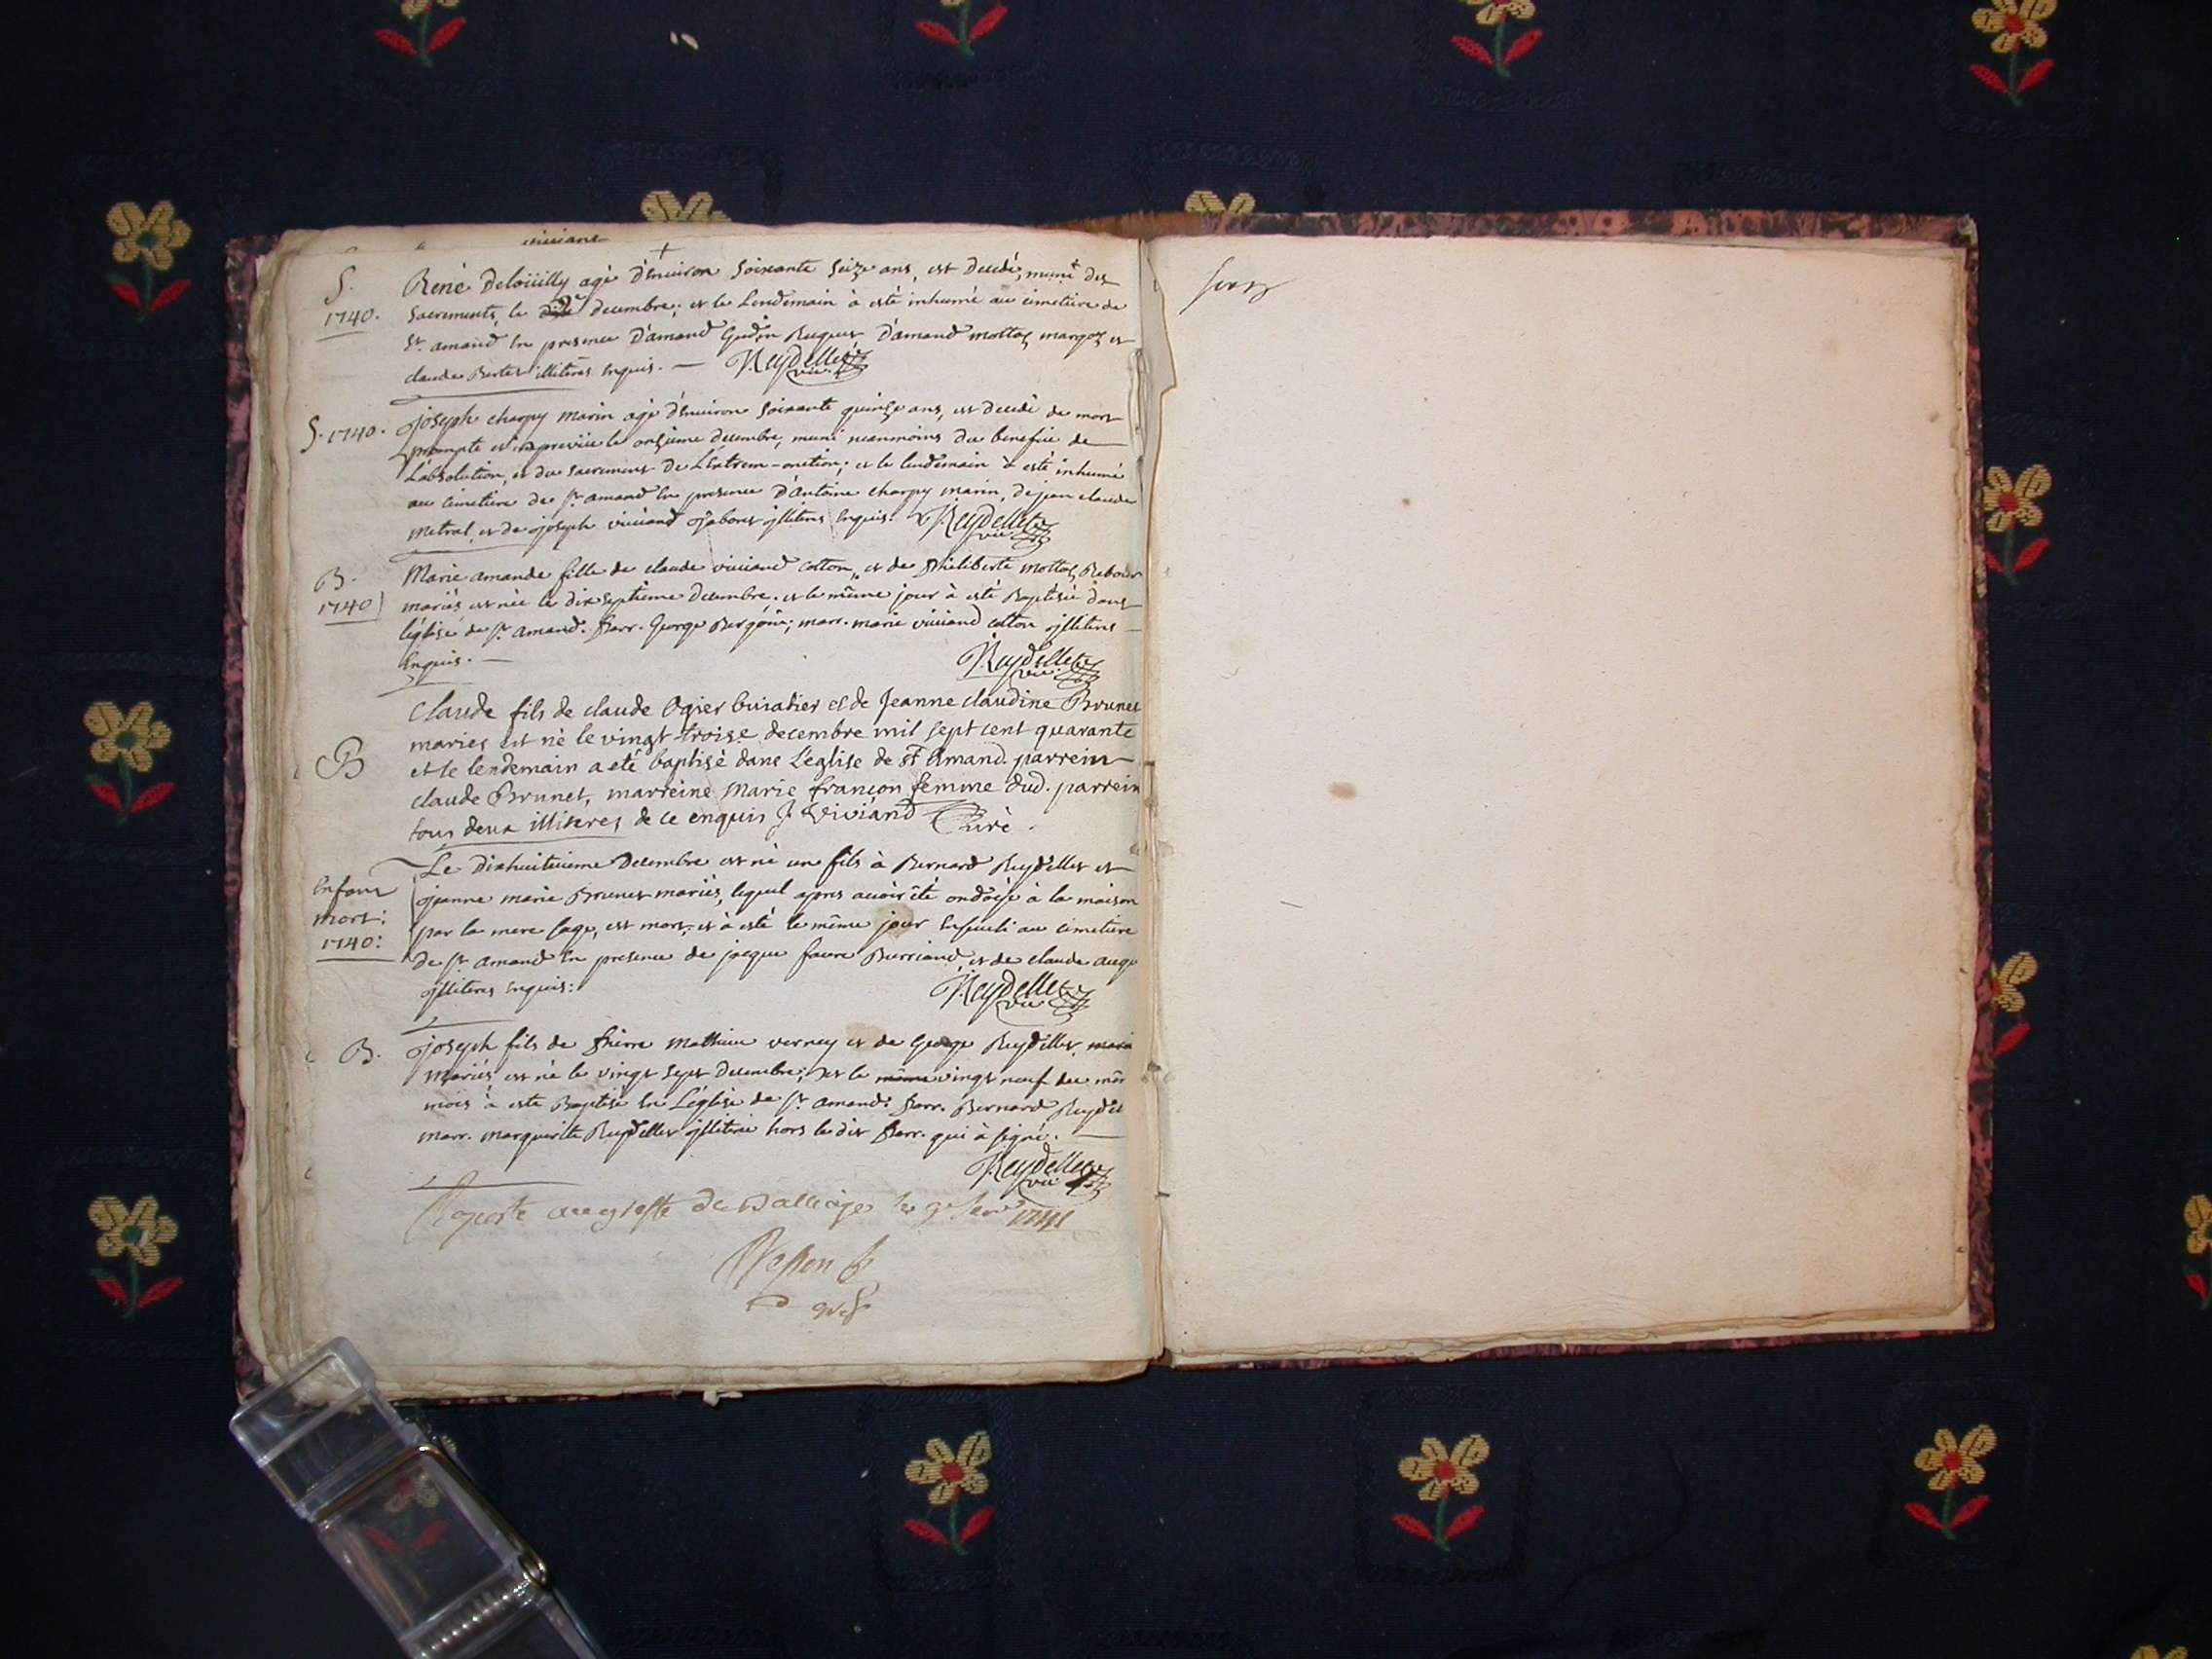 S.
1740.
René Deloüilly agé d'Enuiron soixante seize ans, est decedé, muni des
sacrements, le decembre; et le Lendemain à esté inhumé au cimetiere de
St. amand En presence D'amand D'amand mottas margoz et
claude illiterés Enquis. — Reydellet vic.
S. 1740.
joseph charpy marin agé d'Enuiron soixante quinze ans, est decedé de mort
prompte et impreviie le onzieme decembre, muni neanmoins du benefice de
L'absolution, et du sacrement de L'Extrem-onction; et le lendemain à esté inhumé
au cimetiere de St. amand En presence d'antoine charpy marin, de jean claude
metral, et de joseph viuiand illiterés Enquis. Reydellet vic.
B.
1740
Marie amande fille de claude viuiand cotton, et de philiberte mottas
mariés est née le dix septieme decembre. et le même jour à esté Baptisée dans
l'église de St. amand. parr. George marr. marie viuiand cotton illiterés
Enquis. — Reydellet vic.
B
Claude fils de claude Ogier buiadier et de Jeanne claudine Brunet
mariés est nè le vingt-troise decembre mil sept cent quarante
et le lendemain a eté baptisè dans L'église de St Amand. parrein
claude Brunet, marreine Marie françon femme dud. parrein
tous deux illiteres de ce enquis J Viviand Curè.
Enfant
mort:
1740:
Le Dixhuitieme Decembre est né un fils à Bernard Reydellet et
jeanne marie Brunet mariés, lequel apres auoir été ondoïé à la maison
par la mere sage, est mort, et à esté le même jour Enseueli au cimetiere
de St. amand En presence de jacque faure Burriand, et de claude
illiterés Enquis: Reydellet vic.
B.
joseph fils de pierre mathieu verney et de George Reydellet
mariés est né le vingt sept decembre; et le même vingt neuf du
mois à esté Baptisé En L'église de St. amand. parr. Bernard
marr. marguerite Reydellet illiterée hors le dit parr. qui à signé. —
Reydellet vic.
au greffe du Balliage le 9e 1741